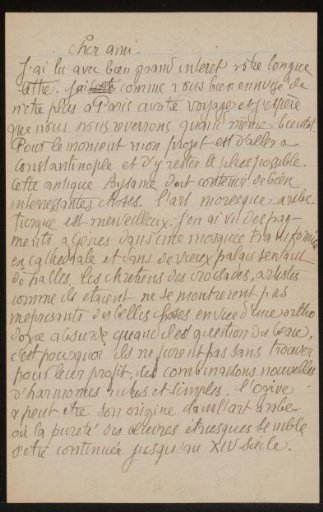 Cher ami
J'ai lu avec bien grand interet votre longue
lettre. J'ai comme vous bien ennuyé de
n'etre plus a Paris avote voyage et j'espère
que nous nous reverrons quand même bientot.
Pour le moment mon projet est d'aller a
Constantinople et d'y rester le plus possible.
Cette antique Bysance doit contenir de bien
interessantes choses. L'art moresque, arabe
turque est merveilleux. J'en ai vu des frag-
ments a Gênes dans une mosquée transformée
en cathedrale et dans de vieux palais servant
de halles. Les chretiens des croisades, artistes
comme ils etaient ne se montrerent pas
meprisants des belles choses en vue d'une ortho
doxie absurde quand il est question du beau,
c'est pourquoi ils ne furent pas sans trouver
pour leur profit des combinaisons nouvelles
d'harmonies riches et simples. L'Ogive
a peut etre son origine dans l'art arabe
où la pureté des œuvres etrusques semble
s'etre continuée jusqu'au XIV Siecle.